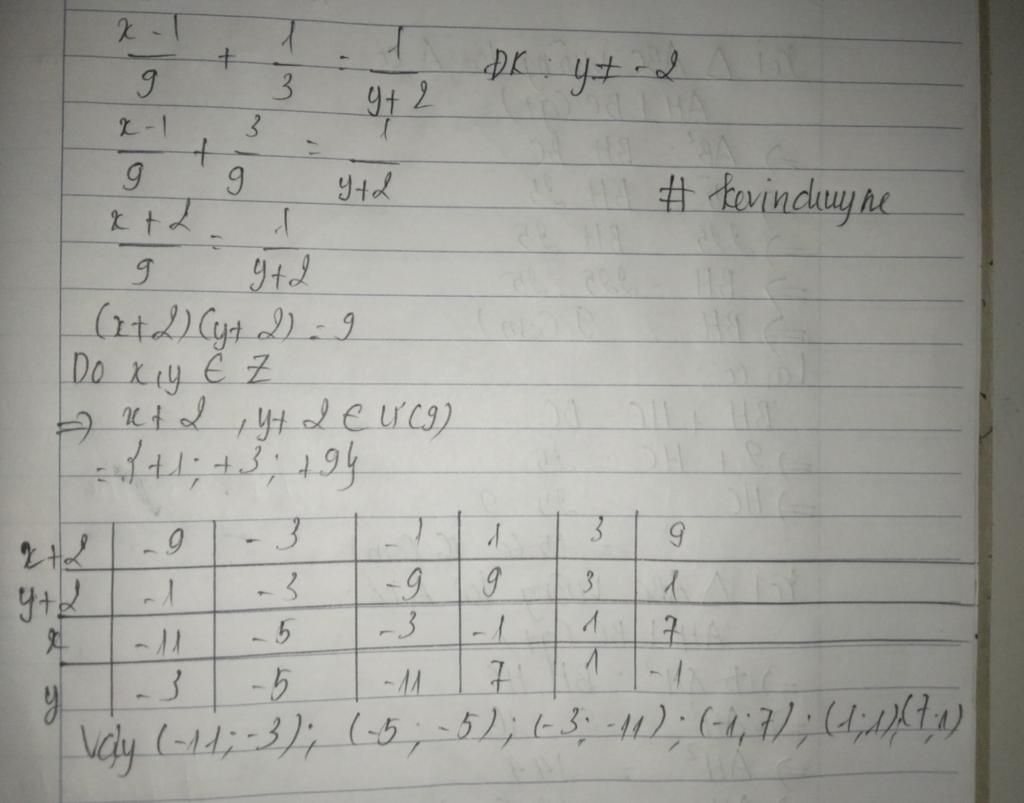 x-1/9 + 1/3 = 1/y+2 ĐK: y≠-2
x-1/9 + 3/9 = 1/y+2
# kevinduuyne
x+2/9 = 1/y+2
(x+2)(y+2)=9
Do x,y ∈ Z
=> x+2, y+2 ∈ Ư(9)
={+1; +3; +9}
x+2 | -9 | -3 | -1 | 1 | 3 | 9
y+2 | -1 | -3 | -9 | 9 | 3 | 1
x | -11 | -5 | -3 | -1 | 1 | 7
y | -3 | -5 | -11 | 7 | 1 | -1
Vậy (-11;-3); (-5;-5); (-3;-11); (-1;7); (1;1);(7;1)